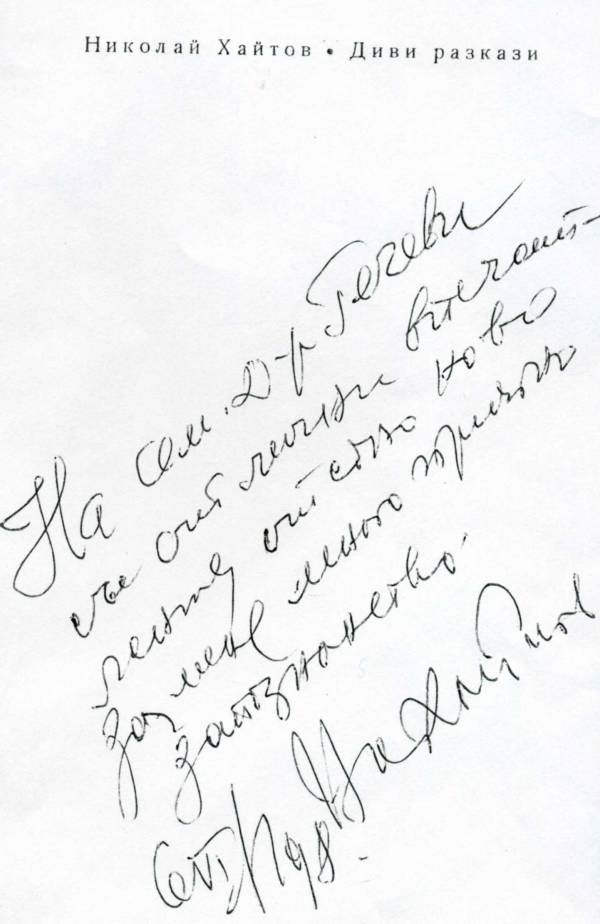 Николай Хайтов • Диви разкази
На сем. Д-р Гечеви
със отлични впечат-
ления от едно ново
за мене много приятно
запознанство.
Н. Хайтов